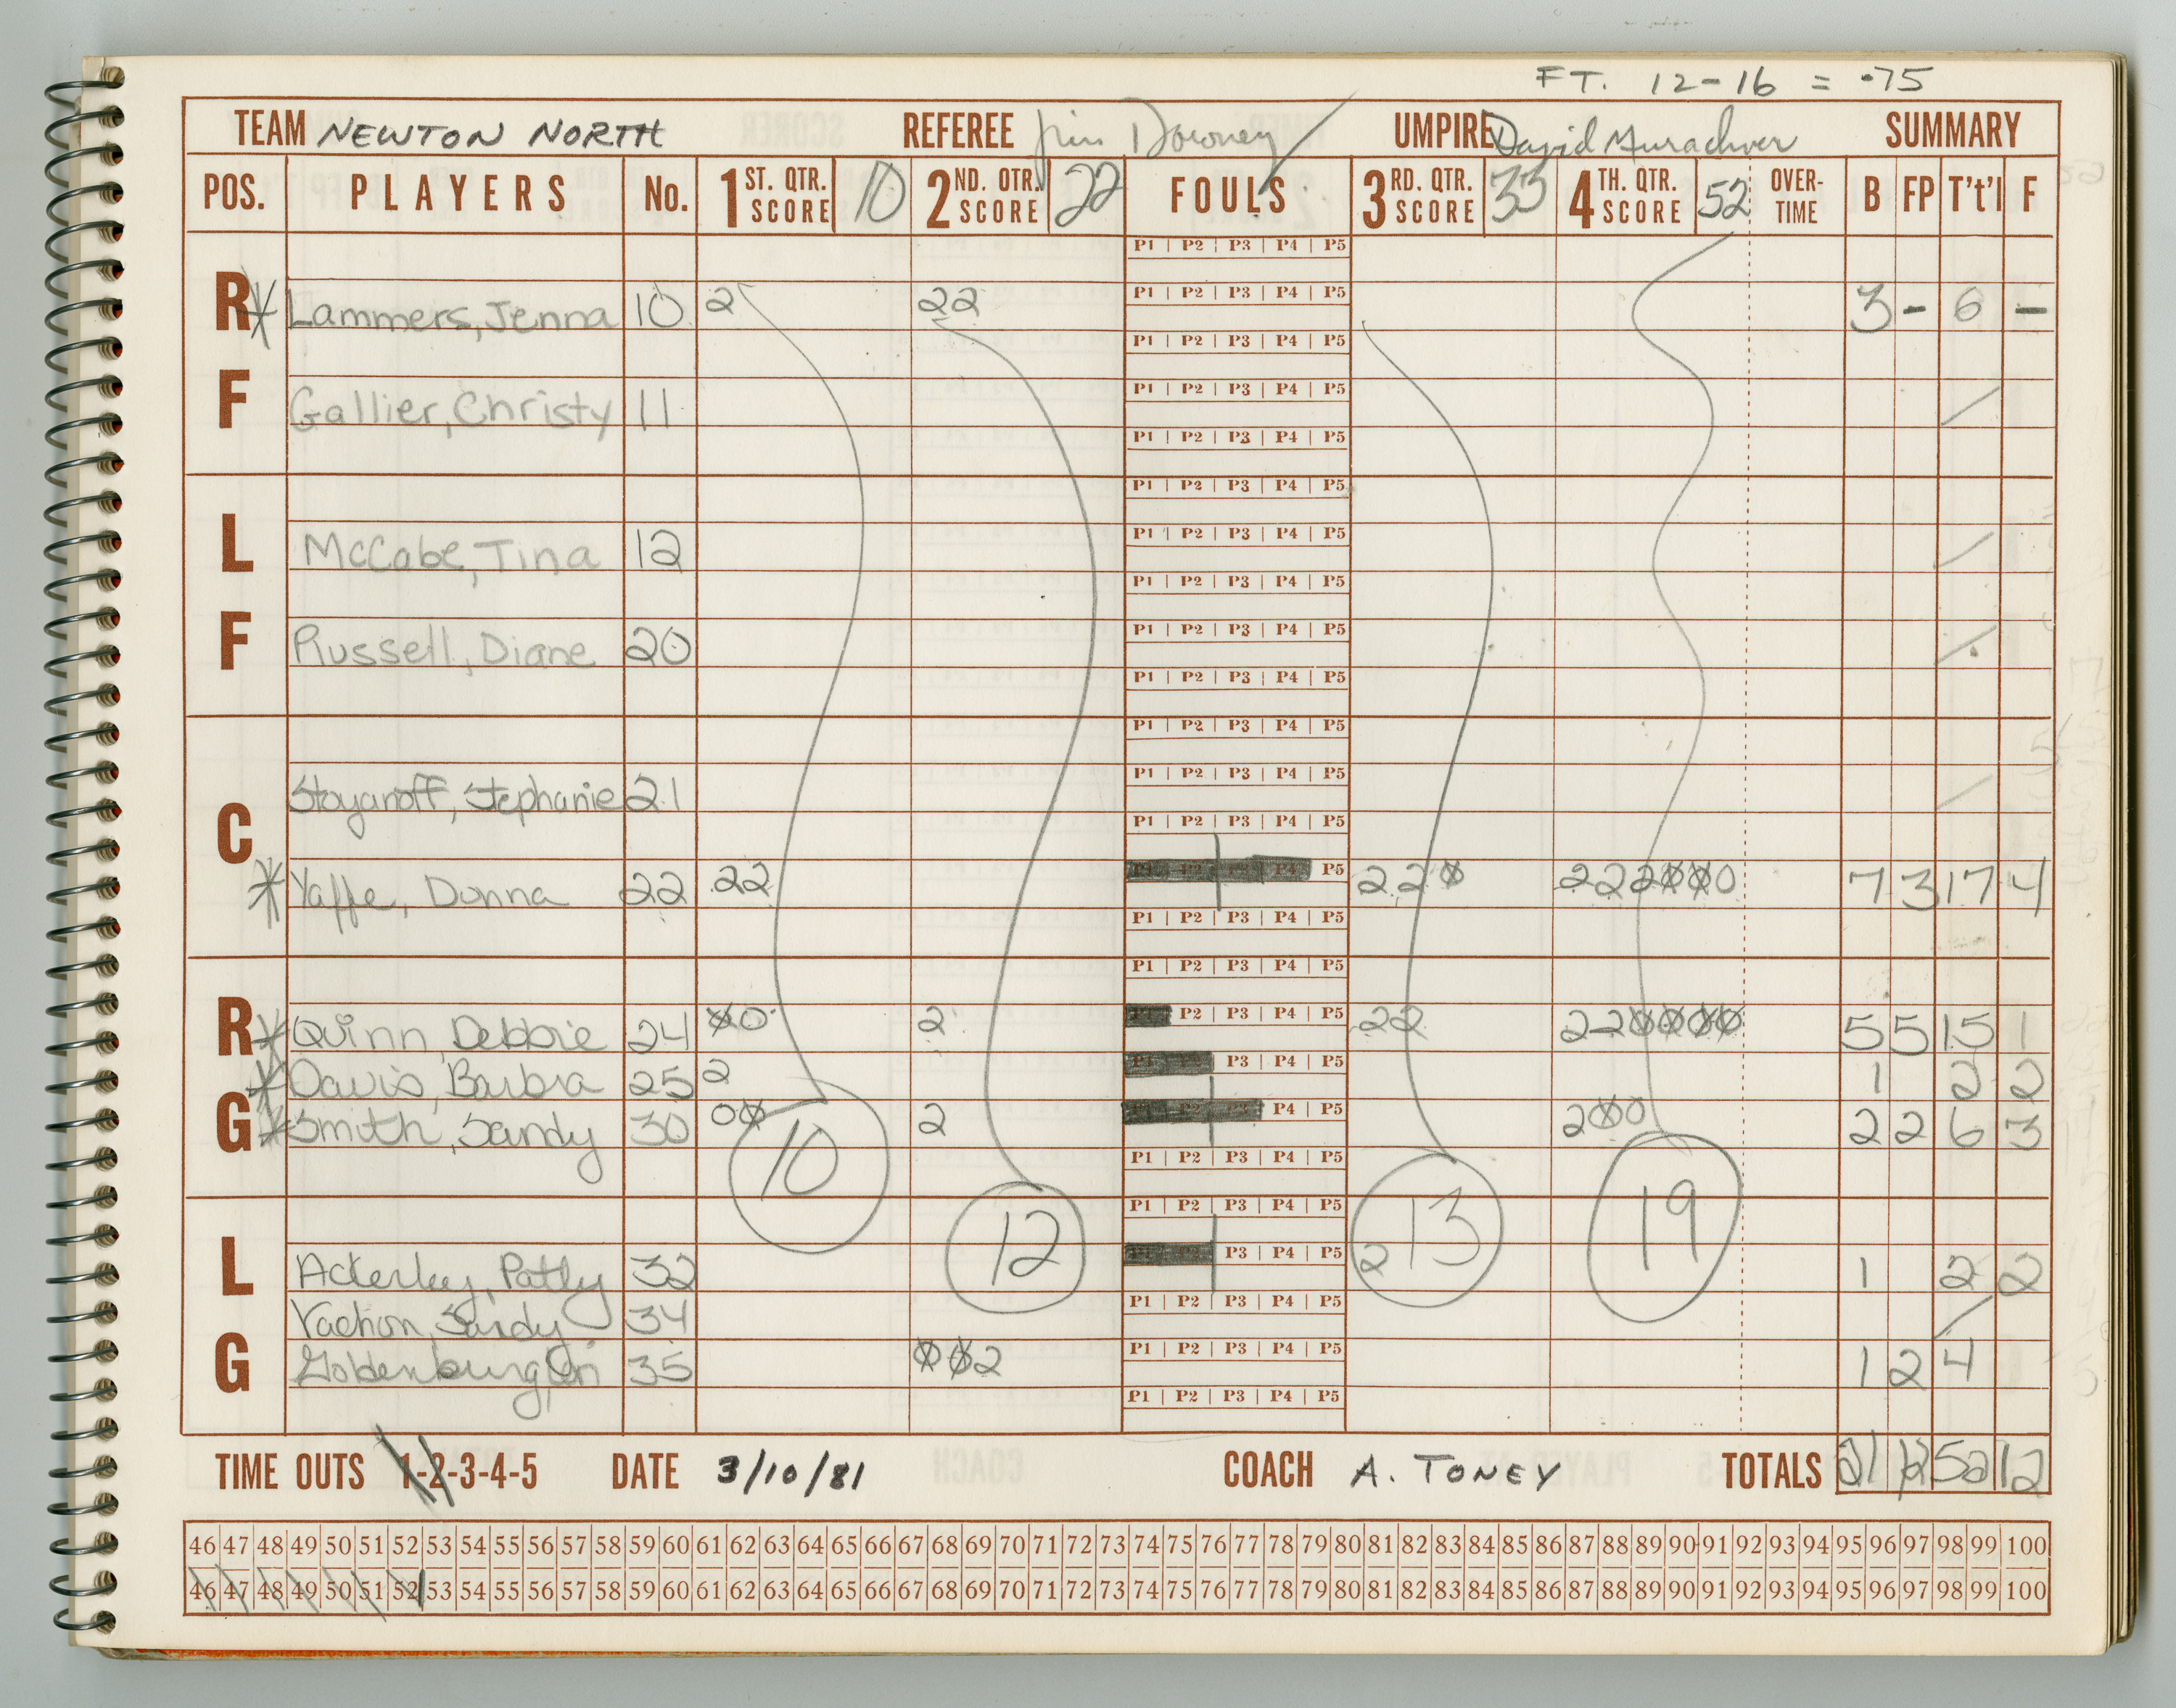 FT. 12-16 = .75
TEAM NEWTON NORTH REFEREE Jim Downey UMPIRE David Murachver SUMMARY
POS. PLAYERS No. 1ST. QTR. SCORE 10 2ND. QTR. SCORE 22 FOULS 3RD. QTR. SCORE 33 4TH. QTR. SCORE 52 OVER-TIME B FP T't'l F
P1 | P2 | P3 | P4 | P5
R Lammers, Jenna 10 2 22 P1 | P2 | P3 | P4 | P5 3 - 6 -
P1 | P2 | P3 | P4 | P5
F Gallier, Christy 11 P1 | P2 | P3 | P4 | P5
P1 | P2 | P3 | P4 | P5
P1 | P2 | P3 | P4 | P5
L McCabe, Tina 12 P1 | P2 | P3 | P4 | P5
P1 | P2 | P3 | P4 | P5
F Russell, Diane 20 P1 | P2 | P3 | P4 | P5
P1 | P2 | P3 | P4 | P5
P1 | P2 | P3 | P4 | P5
Stoyanoff, Stephanie 21 P1 | P2 | P3 | P4 | P5
C P1 | P2 | P3 | P4 | P5
Yaffe, Donna 22 22 P1 P2 P3 P4 P5 22Ø 222ØØØ0 7 3 17 4
P1 | P2 | P3 | P4 | P5
P1 | P2 | P3 | P4 | P5
R Quinn, Debbie 24 Ø0 2 P1 P2 | P3 | P4 | P5 22 22ØØØØ 5 5 15 1
Davis, Barbra 25 2 P1 P2 P3 | P4 | P5 1 2 2
G Smith, Sandy 30 0Ø 2 P1 P2 P3 P4 | P5 2Ø0 2 2 6 3
10 P1 | P2 | P3 | P4 | P5
12 P1 | P2 | P3 | P4 | P5 13 19
L Ackerley, Patty 32 P1 P2 P3 | P4 | P5 2 1 2 2
Vachon, Sandy 34 P1 | P2 | P3 | P4 | P5
G Goldenburg, Lori 35 ØØ2 P1 | P2 | P3 | P4 | P5 1 2 4
P1 | P2 | P3 | P4 | P5
TIME OUTS 1-2-3-4-5 DATE 3/10/81 COACH A. TONEY TOTALS 21 12 52 12
46 47 48 49 50 51 52 53 54 55 56 57 58 59 60 61 62 63 64 65 66 67 68 69 70 71 72 73 74 75 76 77 78 79 80 81 82 83 84 85 86 87 88 89 90 91 92 93 94 95 96 97 98 99 100
46 47 48 49 50 51 52 53 54 55 56 57 58 59 60 61 62 63 64 65 66 67 68 69 70 71 72 73 74 75 76 77 78 79 80 81 82 83 84 85 86 87 88 89 90 91 92 93 94 95 96 97 98 99 100